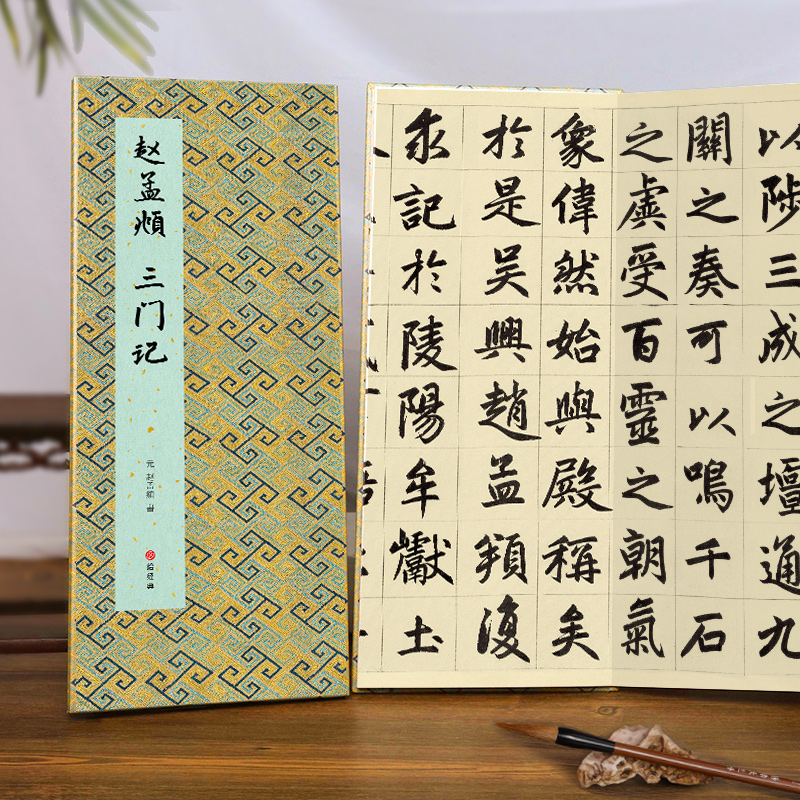 赵孟頫 三门记
元 赵孟頫 书
拾经典
以陟三成之壇通九
關之奏可以鳴千石
之虡受百靈之朝氣
象偉然始與殿稱矣
於是吴興趙孟頫復
求記於陵陽牟巘土